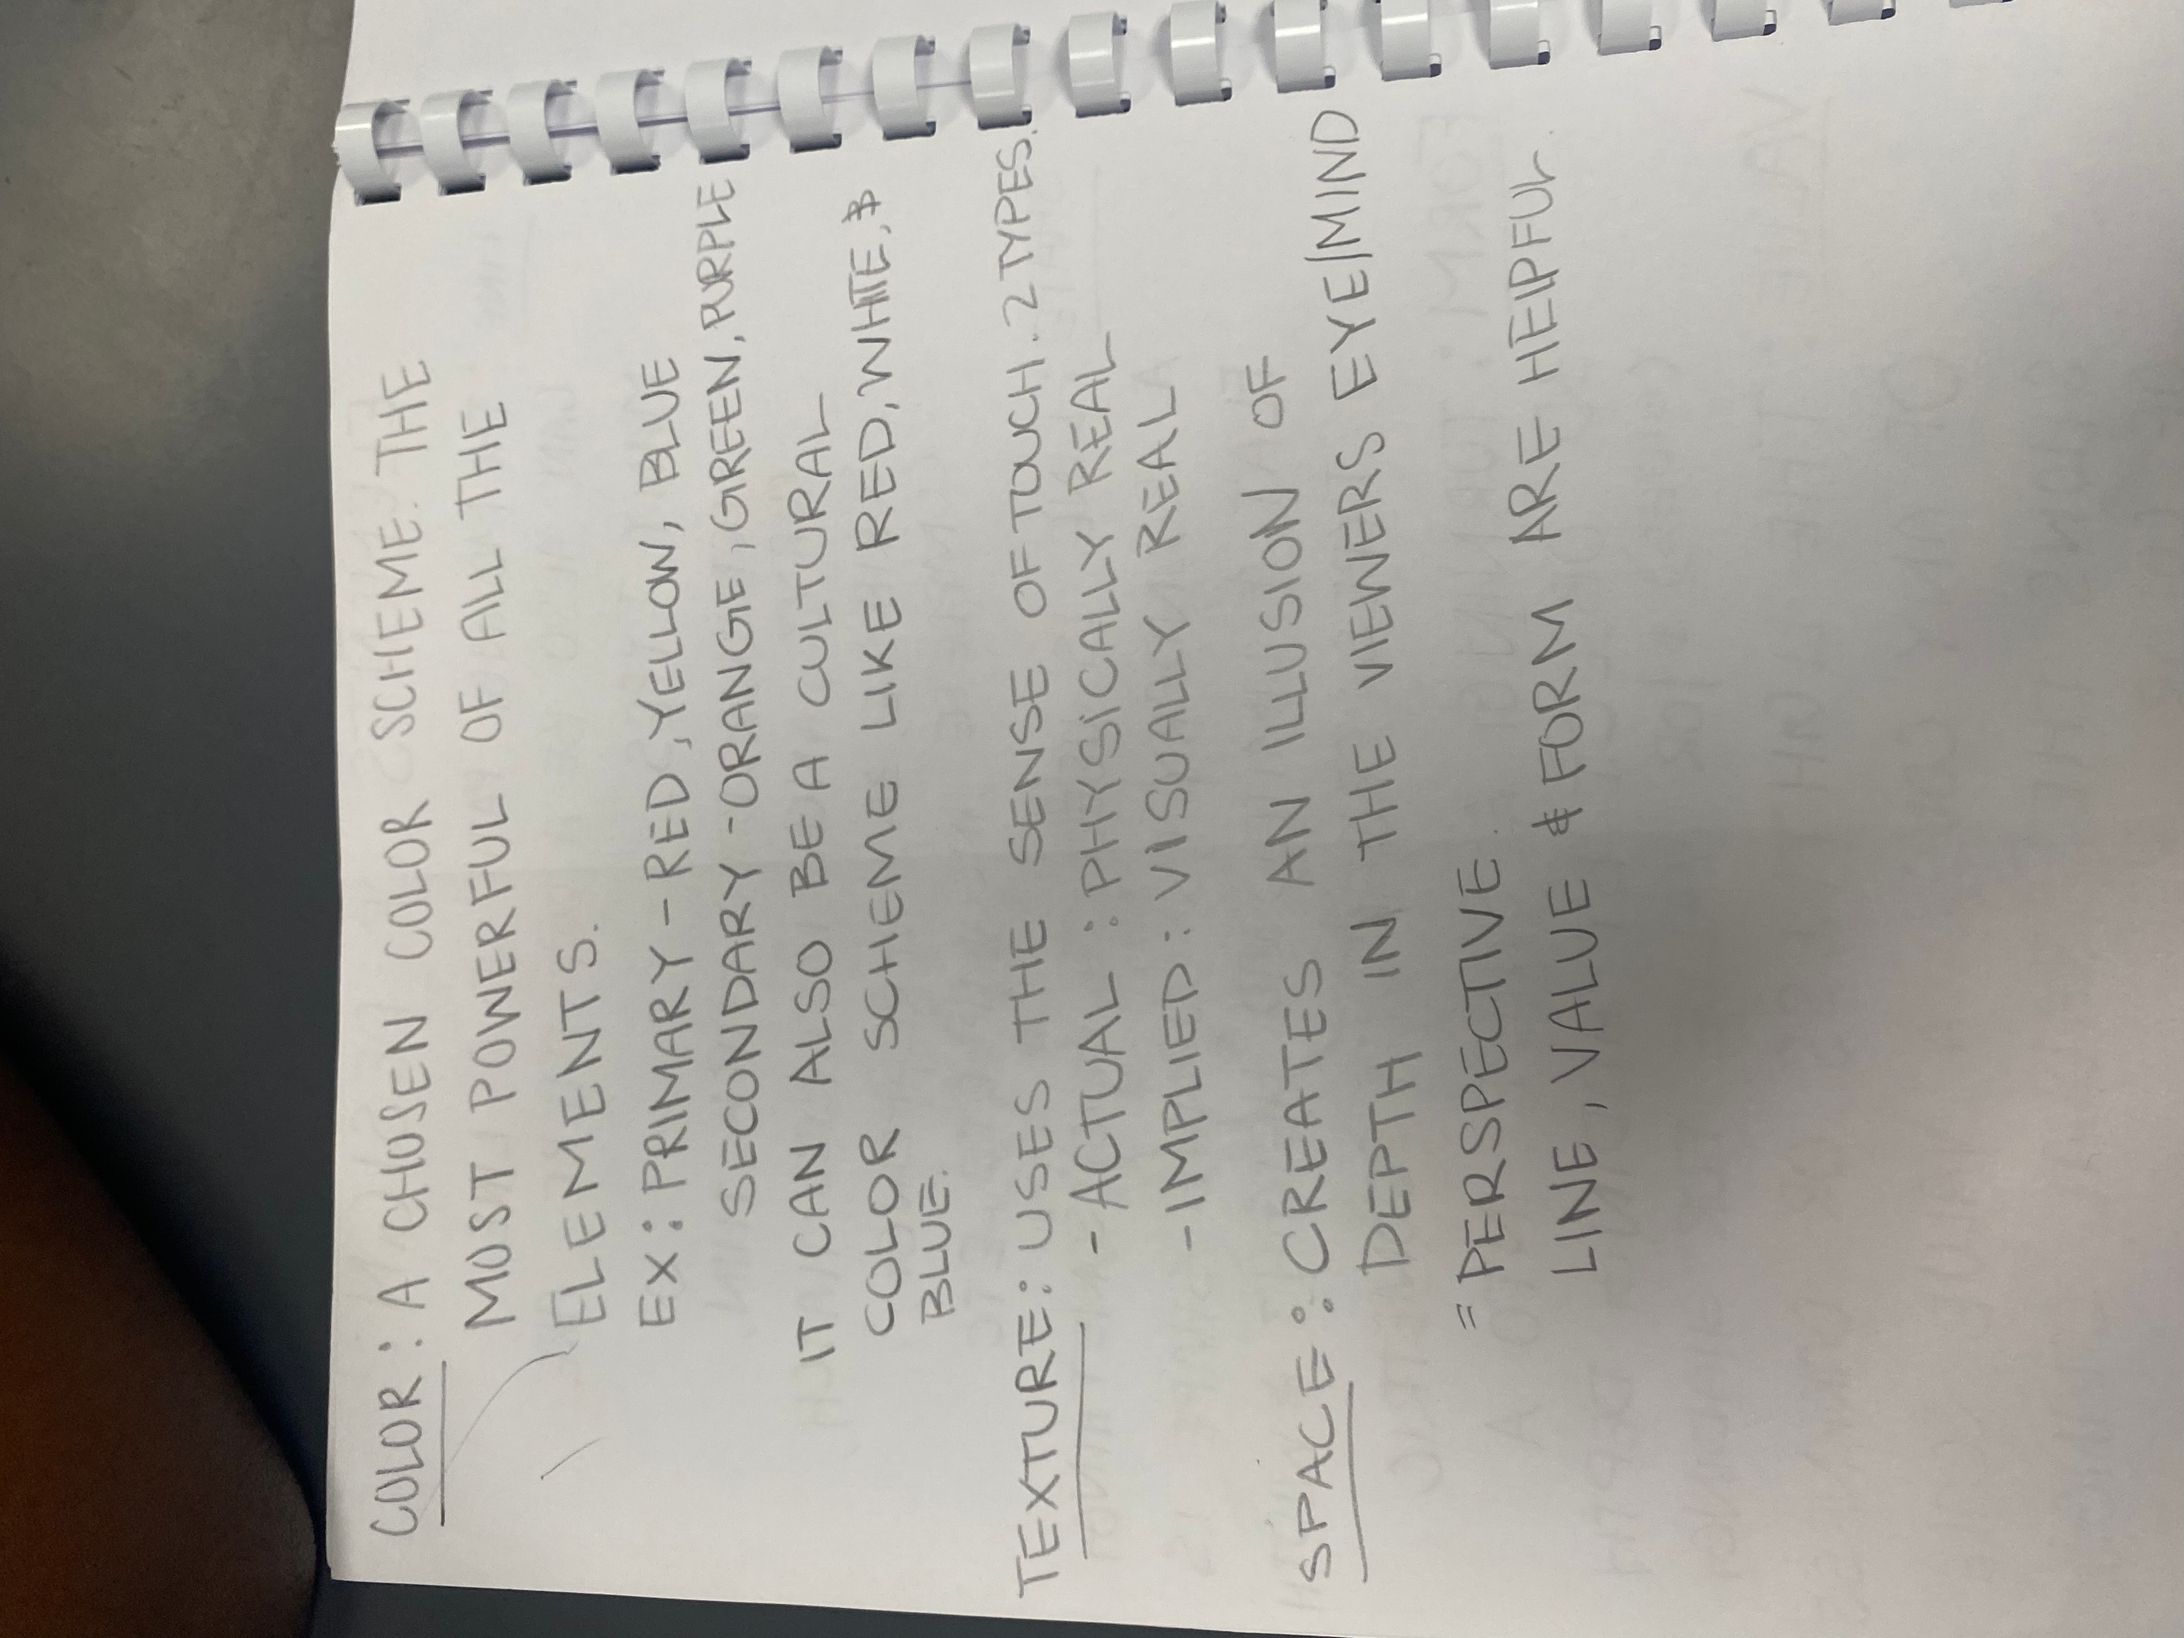 COLOR: A CHOSEN COLOR SCHEME. THE
MOST POWERFUL OF ALL THE
ELEMENTS.
EX: PRIMARY - RED, YELLOW, BLUE
SECONDARY - ORANGE, GREEN, PURPLE
IT CAN ALSO BE A CULTURAL
COLOR SCHEME LIKE RED, WHITE, &
BLUE.
TEXTURE: USES THE SENSE OF TOUCH. 2 TYPES.
- ACTUAL : PHYSICALLY REAL
- IMPLIED : VISUALLY REAL
SPACE: CREATES AN ILLUSION OF
DEPTH IN THE VIEWERS EYE/MIND
= PERSPECTIVE.
LINE, VALUE & FORM ARE HELPFUL.